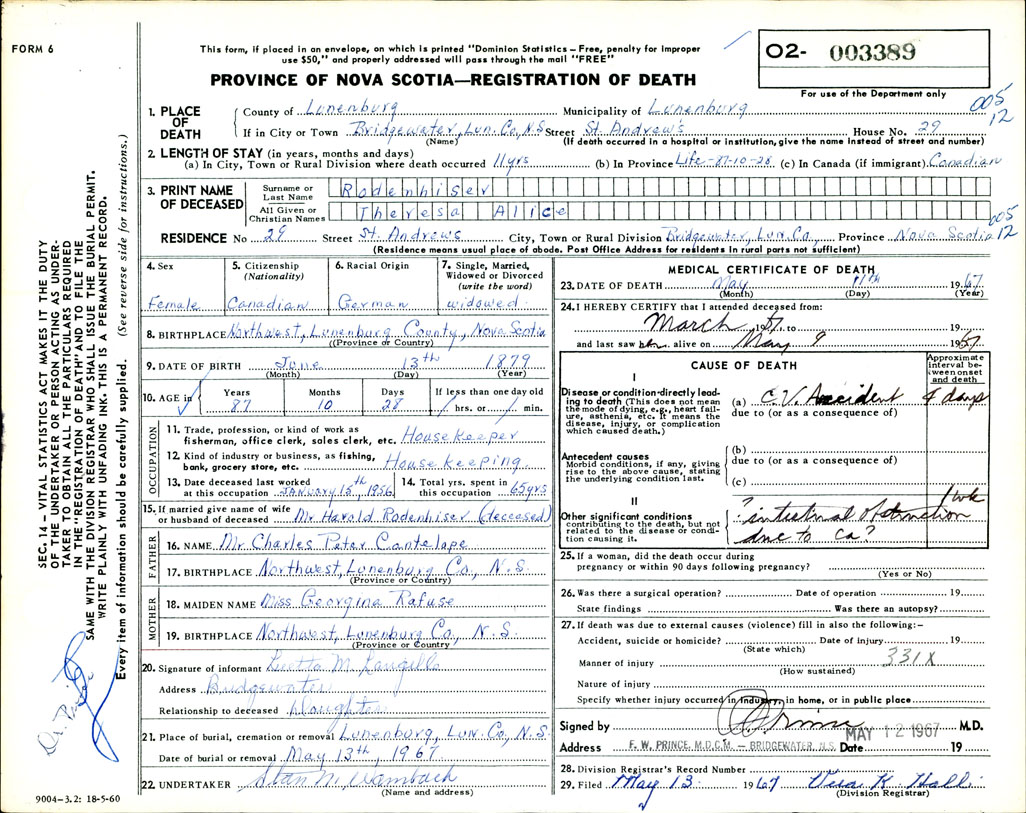 FORM 6
This form, if placed in an envelope, on which is printed "Dominion Statistics – Free, penalty for improper
use $50," and properly addressed will pass through the mail "FREE"
PROVINCE OF NOVA SCOTIA—REGISTRATION OF DEATH
O2- 003389
For use of the Department only
005
12
1. PLACE OF DEATH
County of Lunenburg Municipality of Lunenburg
If in City or Town Bridgewater, Lun. Co, N.S Street St. Andrew's House No. 29
(Name) (If death occurred in a hospital or institution, give the name instead of street and number)
2. LENGTH OF STAY (in years, months and days)
(a) In City, Town or Rural Division where death occurred 11 yrs (b) In Province Life-87-10-28 (c) In Canada (if immigrant) Canadian
3. PRINT NAME OF DECEASED
Surname or Last Name Rodenhiser
All Given or Christian Names Theresa Alice
005
12
RESIDENCE No 29 Street St. Andrew's City, Town or Rural Division Bridgewater, Lun. Co., Province Nova Scotia
(Residence means usual place of abode. Post Office Address for residents in rural parts not sufficient)
4. Sex Female
5. Citizenship (Nationality) Canadian
6. Racial Origin German
7. Single, Married, Widowed or Divorced (write the word) widowed
8. BIRTHPLACE Northwest, Lunenburg County, Nova Scotia
(Province or Country)
9. DATE OF BIRTH June 13th 1879
(Month) (Day) (Year)
10. AGE in Years 87 Months 10 Days 28 If less than one day old / hrs. or / min.
OCCUPATION
11. Trade, profession, or kind of work as
fisherman, office clerk, sales clerk, etc. House Keeper
12. Kind of industry or business, as fishing,
bank, grocery store, etc. House Keeping
13. Date deceased last worked
at this occupation January 15th, 1956
14. Total yrs. spent in
this occupation 65 yrs
15. If married give name of wife
or husband of deceased Mr Harold Rodenhiser (deceased)
FATHER
16. NAME Mr Charles Peter Cantelope
17. BIRTHPLACE Northwest, Lunenburg Co., N.S.
(Province or Country)
MOTHER
18. MAIDEN NAME Miss Georgina Rafuse
19. BIRTHPLACE Northwest, Lunenburg Co., N.S.
(Province or Country
20. Signature of informant M. Langille
Address Bridgewater
Relationship to deceased Daughter
21. Place of burial, cremation or removal Lunenburg, Lun. Co., N.S
Date of burial or removal May 13th, 1967
22. UNDERTAKER Wambach
(Name and address)
9004-3.2: 18-5-60
MEDICAL CERTIFICATE OF DEATH
23. DATE OF DEATH May 11th 1967
(Month) (Day) (Year)
24. I HEREBY CERTIFY that I attended deceased from:
March 1957 to 19
and last saw alive on May 9 1957
CAUSE OF DEATH
Approximate interval between onset and death
I
Disease or condition directly leading to death (This does not mean
the mode of dying, e.g., heart failure, asthenia, etc. It means the
disease, injury, or complication
which caused death.)
(a) C.V. Accident 4 days
due to (or as a consequence of)
Antecedent causes
Morbid conditions, if any, giving
rise to the above cause, stating
the underlying condition last.
(b)
due to (or as a consequence of)
(c)
II
Other significant conditions
contributing to the death, but not
related to the disease or condition causing it.
? intestinal obstruction 1 wk
due to ca?
25. If a woman, did the death occur during
pregnancy or within 90 days following pregnancy?
(Yes or No)
26. Was there a surgical operation? Date of operation 19
State findings Was there an autopsy?
27. If death was due to external causes (violence) fill in also the following:–
Accident, suicide or homicide? Date of injury 19
(State which)
Manner of injury 331X
(How sustained)
Nature of injury
Specify whether injury occurred in industry, in home, or in public place
Signed by Prince M.D.
MAY 12 1967
Address F. W. PRINCE, M.D.C.M. — BRIDGEWATER, N.S. Date 19
28. Division Registrar's Record Number
29. Filed May 13 1967 K. Hall
(Division Registrar)
SEC. 14 – VITAL STATISTICS ACT MAKES IT THE DUTY
OF THE UNDERTAKER OR PERSON ACTING AS UNDERTAKER TO OBTAIN ALL THE PARTICULARS REQUIRED
IN THE "REGISTRATION OF DEATH" AND TO FILE THE
SAME WITH THE DIVISION REGISTRAR WHO SHALL ISSUE THE BURIAL PERMIT.
WRITE PLAINLY WITH UNFADING INK. THIS IS A PERMANENT RECORD.
Every item of information should be carefully supplied. (See reverse side for instructions.)
Dr. Prince